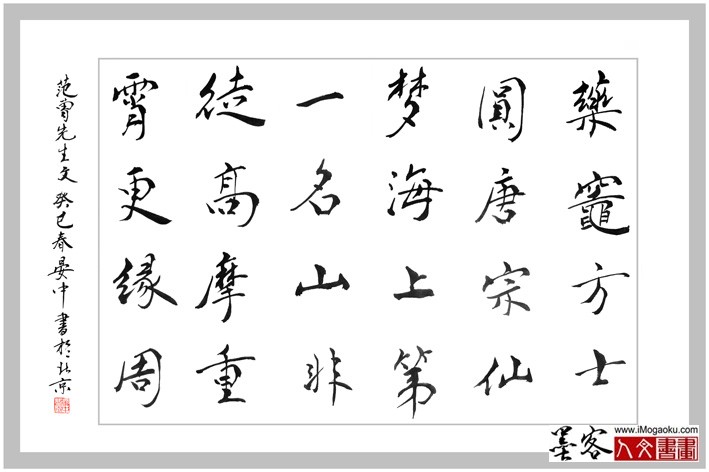 藥竈方士
圓唐宗仙
梦海上第
一名山非
徒高摩重
霄更緣周
范曾先生文 癸巳春晏中書於北京
www.iMogaoku.com
墨客 人文書畫